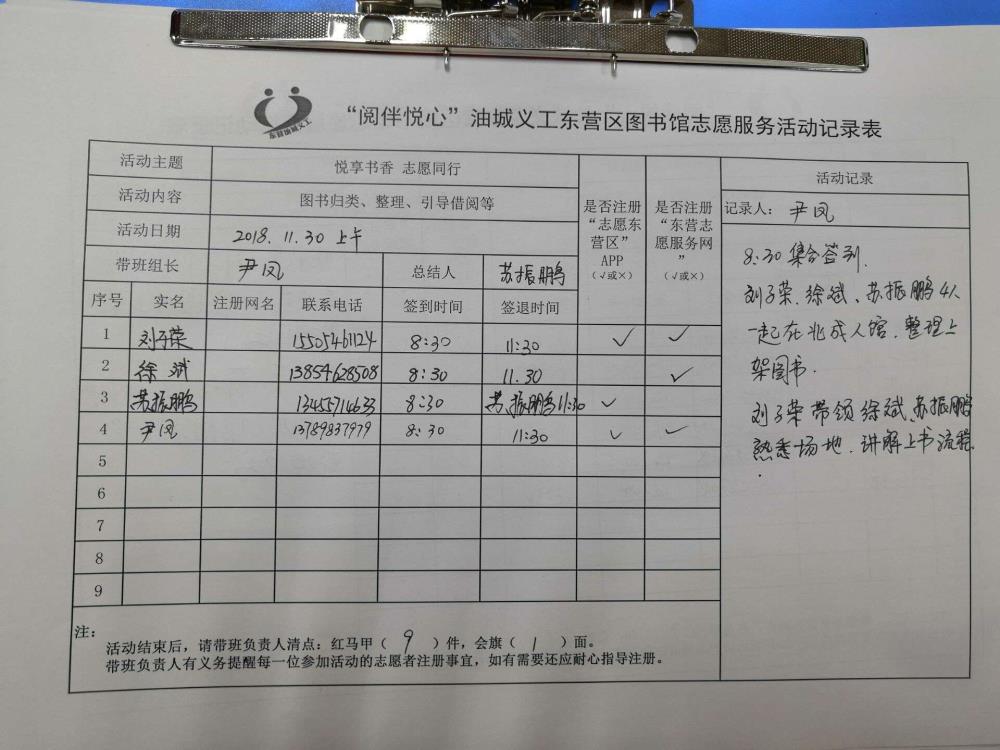 东营油城义工
“阅伴悦心”油城义工东营区图书馆志愿服务活动记录表
活动主题 悦享书香 志愿同行
活动内容 图书归类、整理、引导借阅等
活动日期 2018.11.30 上午
带班组长 尹凤 总结人 苏振鹏
序号 实名 注册网名 联系电话 签到时间 签退时间
是否注册
“志愿东
营区”
APP
(√或×)
是否注册
“东营志
愿服务网
”
(√或×)
1 刘子荣 15505461124 8:30 11:30 √ √
2 徐斌 13854628508 8:30 11.30 √
3 苏振鹏 13455714633 8:30 苏振鹏11:30 √
4 尹凤 13789837979 8:30 11:30 √ √
5
6
7
8
9
注:
活动结束后，请带班负责人清点：红马甲（ 9 ）件，会旗（ 1 ）面。
带班负责人有义务提醒每一位参加活动的志愿者注册事宜，如有需要还应耐心指导注册。
活动记录
记录人： 尹凤
8:30 集合签到.
刘子荣、徐斌、苏振鹏 4人
一起在北成人馆.整理上
架图书.
刘子荣带领徐斌、苏振鹏
熟悉场地.讲解上书流程
.